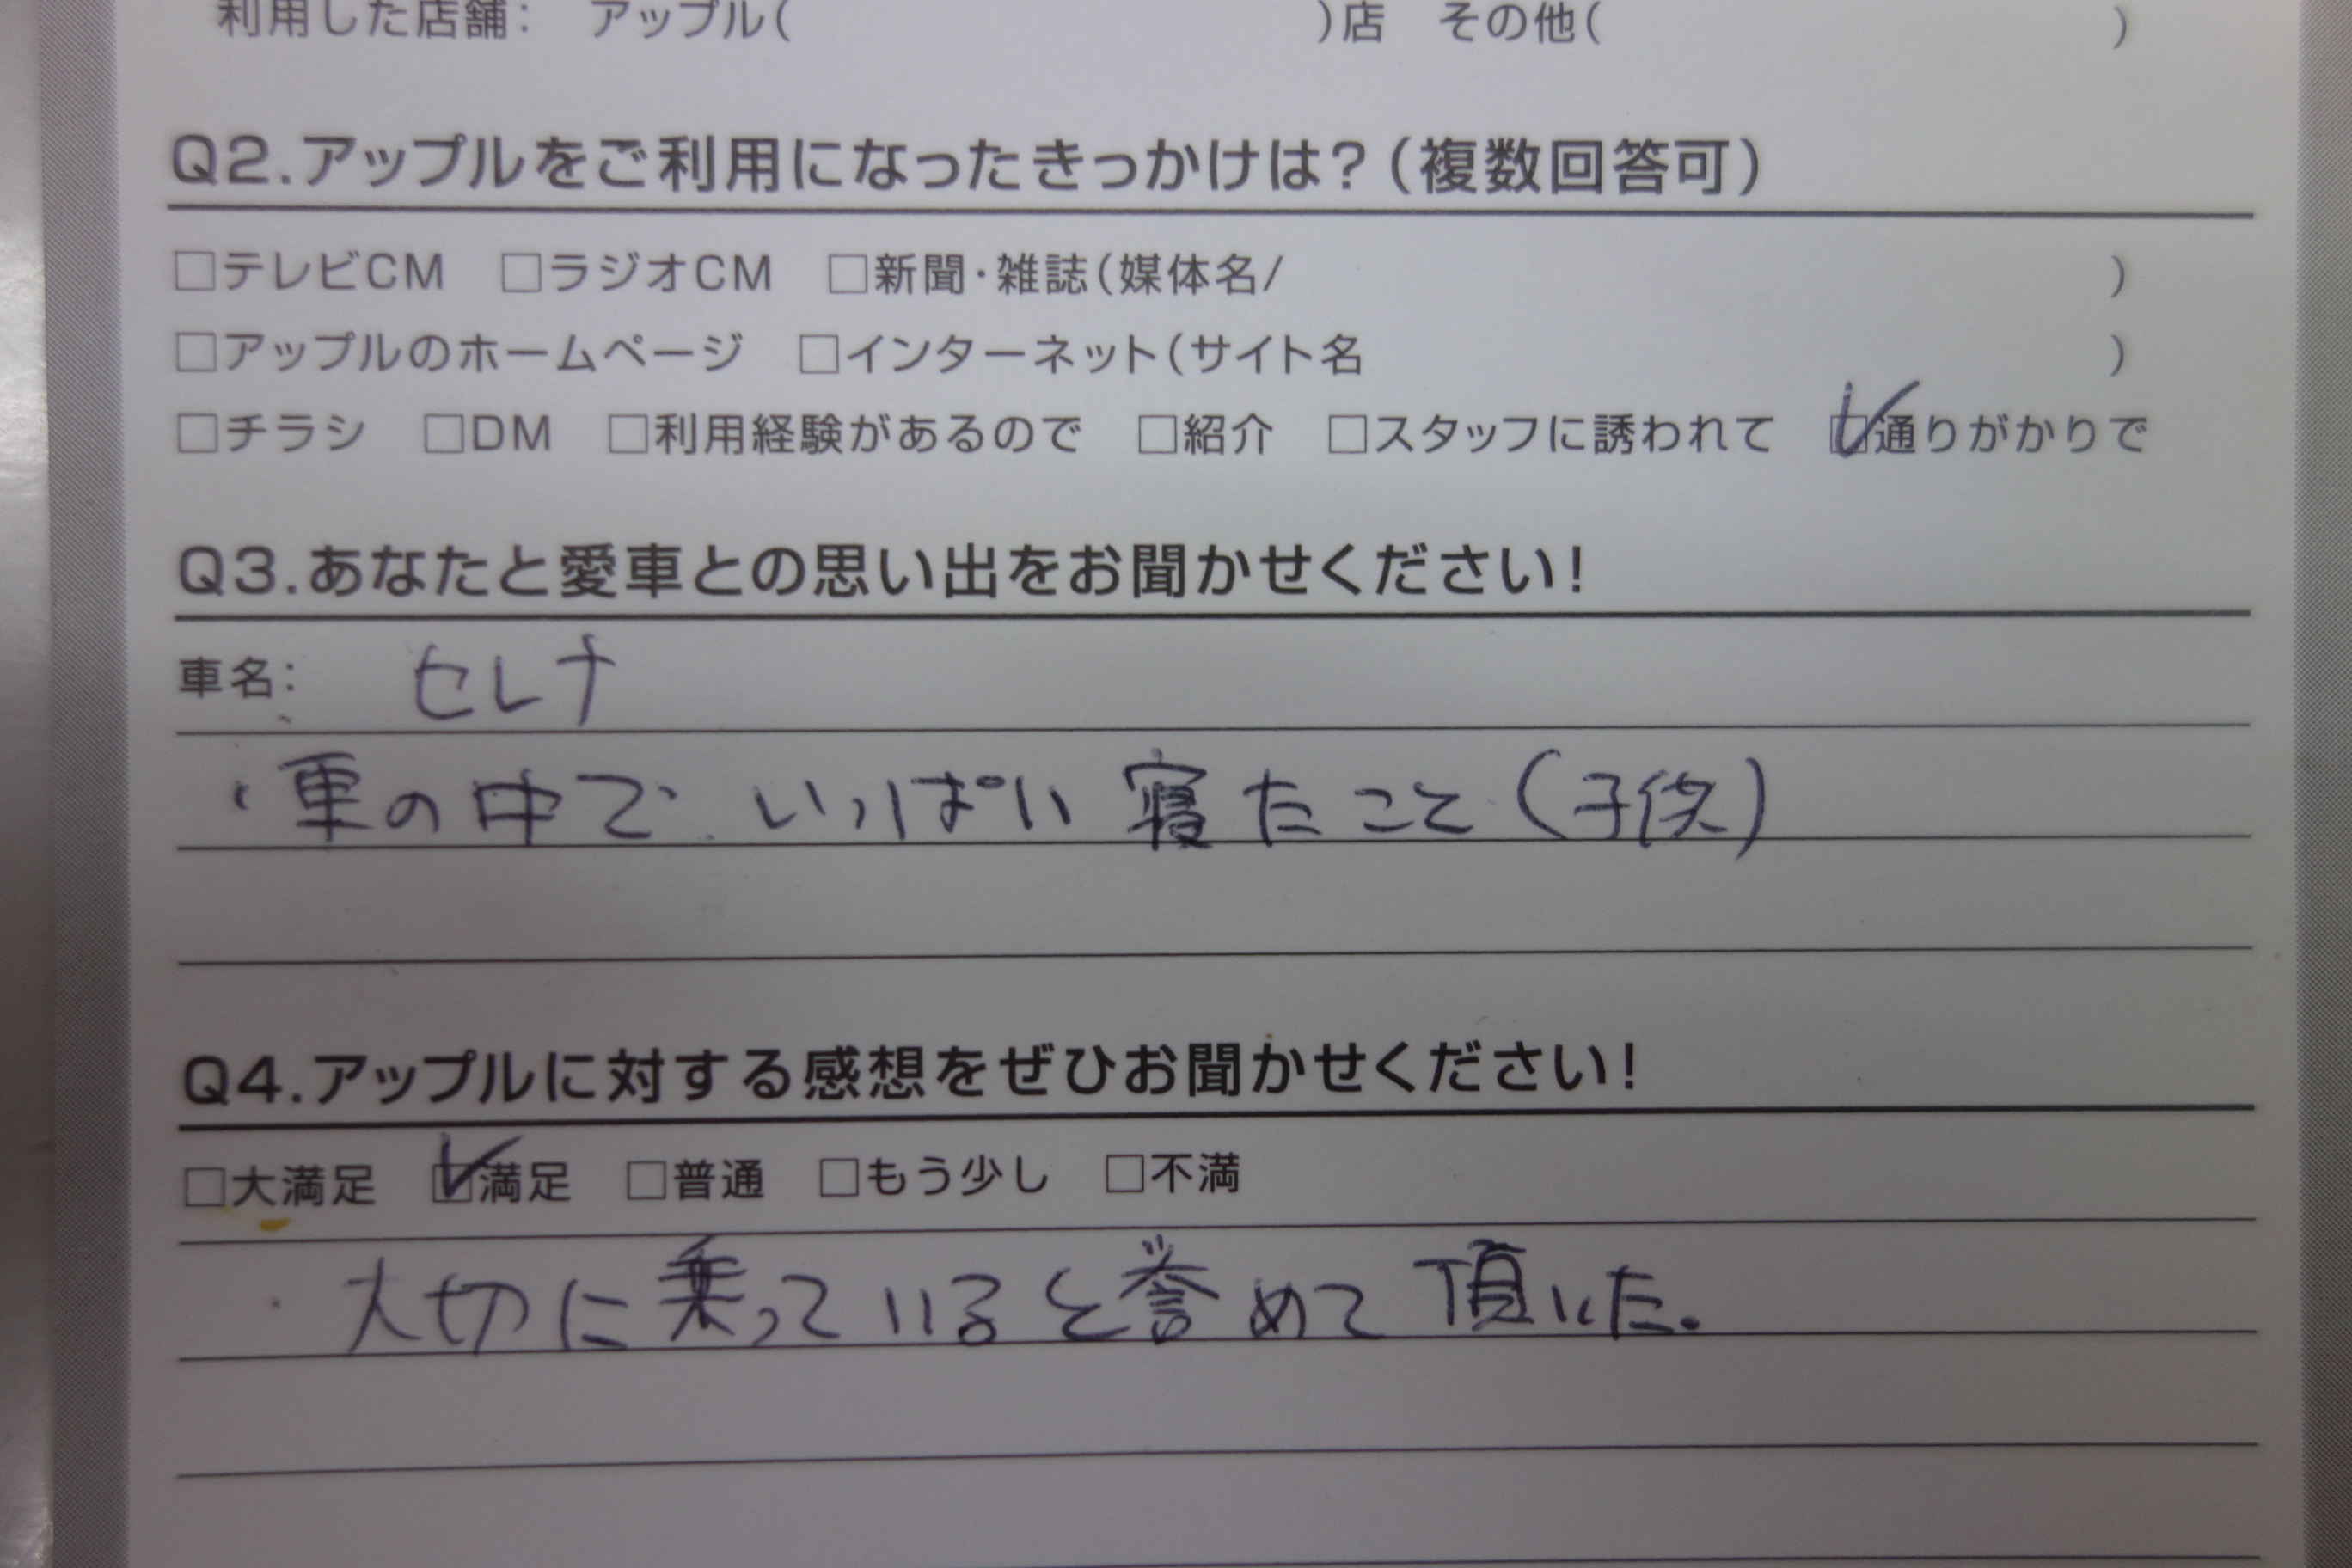 利用した店舗： アップル（ ）店 その他（ ）
Q2.アップルをご利用になったきっかけは？（複数回答可）
□テレビCM □ラジオCM □新聞・雑誌（媒体名/ ）
□アップルのホームページ □インターネット（サイト名 ）
□チラシ □DM □利用経験があるので □紹介 □スタッフに誘われて ☑通りがかりで
Q3.あなたと愛車との思い出をお聞かせください！
車名： セレナ
・車の中で いっぱい 寝たこと（子供）
Q4.アップルに対する感想をぜひお聞かせください！
□大満足 ☑満足 □普通 □もう少し □不満
・大切に乗っていると誉めて頂いた。